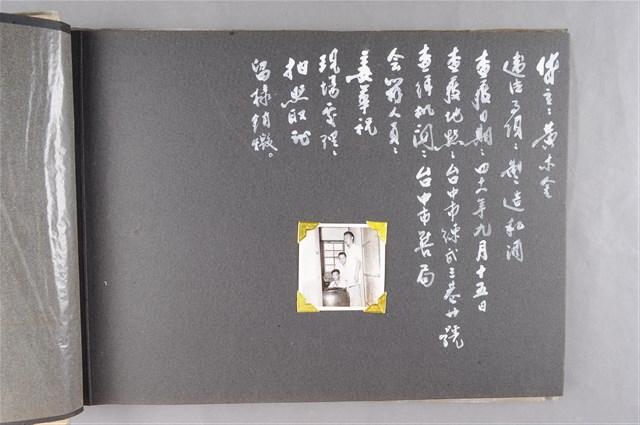 主：黃木金
違法事項：製造私酒
查獲日期：四十一年九月十五日
查獲地點：台中市練武三巷廿號
查緝機關：台中市警局
會人員：
姜華祝
現場處理：
拍照取証
留樣銷燬。